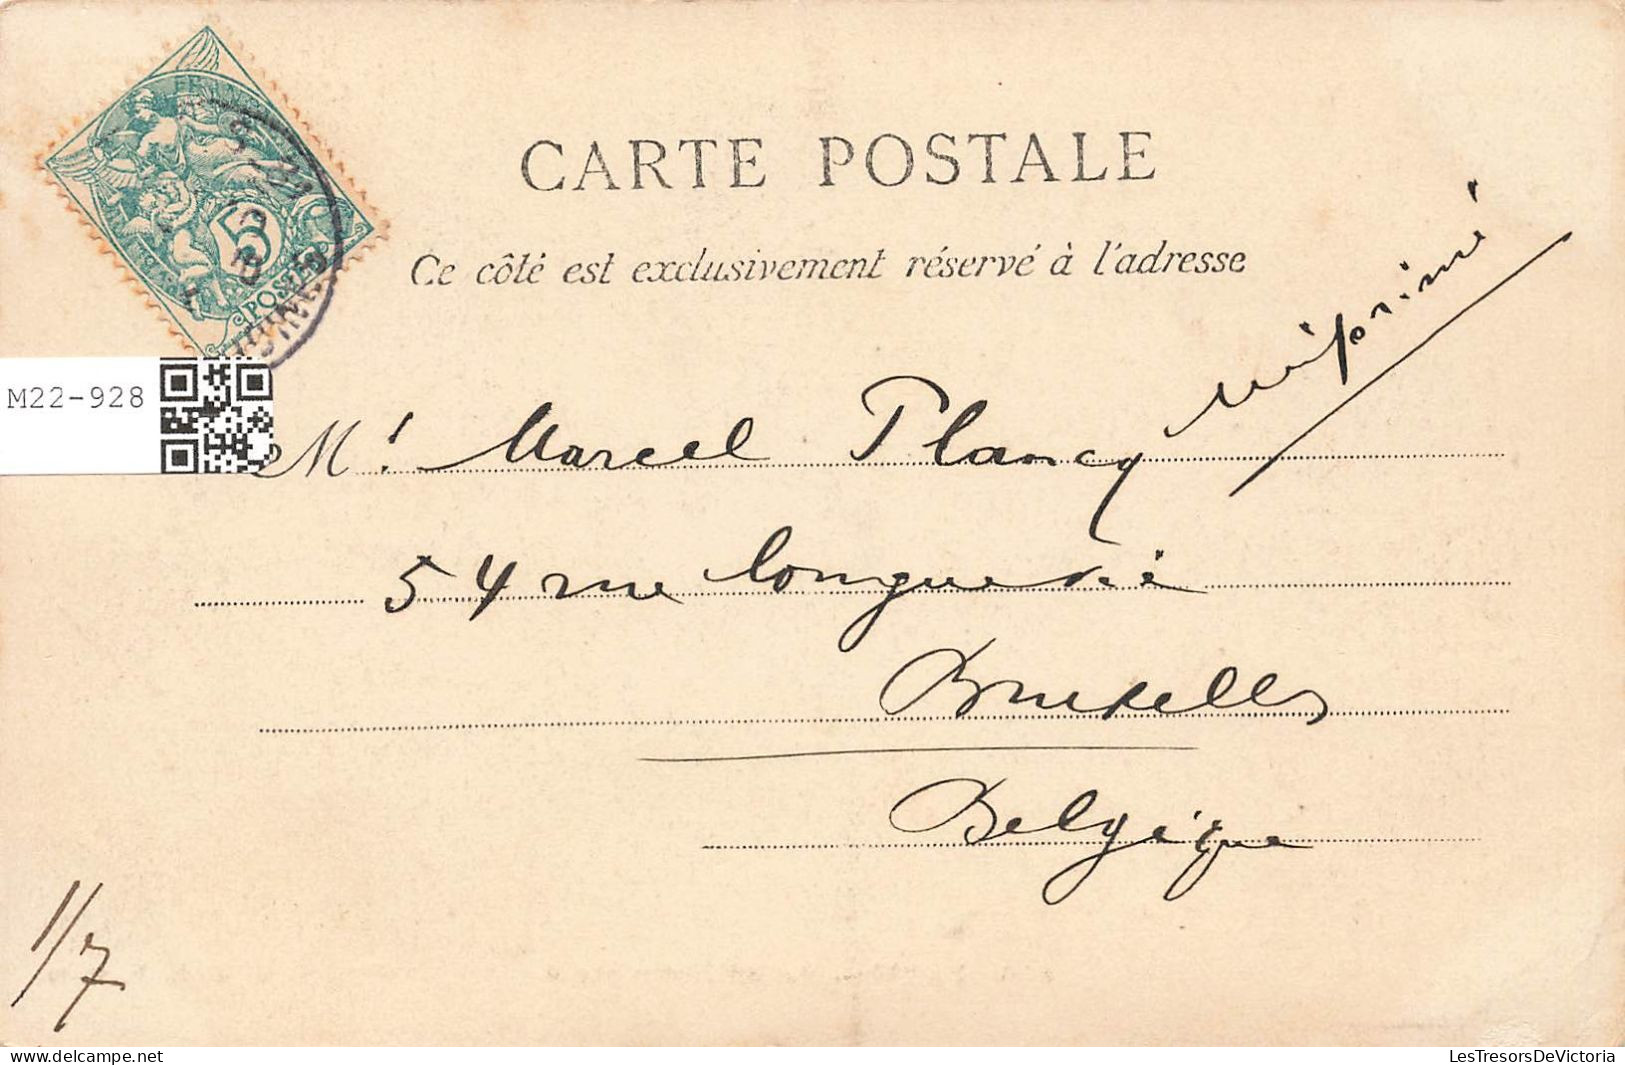 5
POSTES
CARTE POSTALE
Ce côté est exclusivement réservé à l'adresse
imprimé
M22-928
Mr Marcel Plancq
54 rue longue vie
Bruxelles
Belgique
1/7
LesTresorsDeVictoria